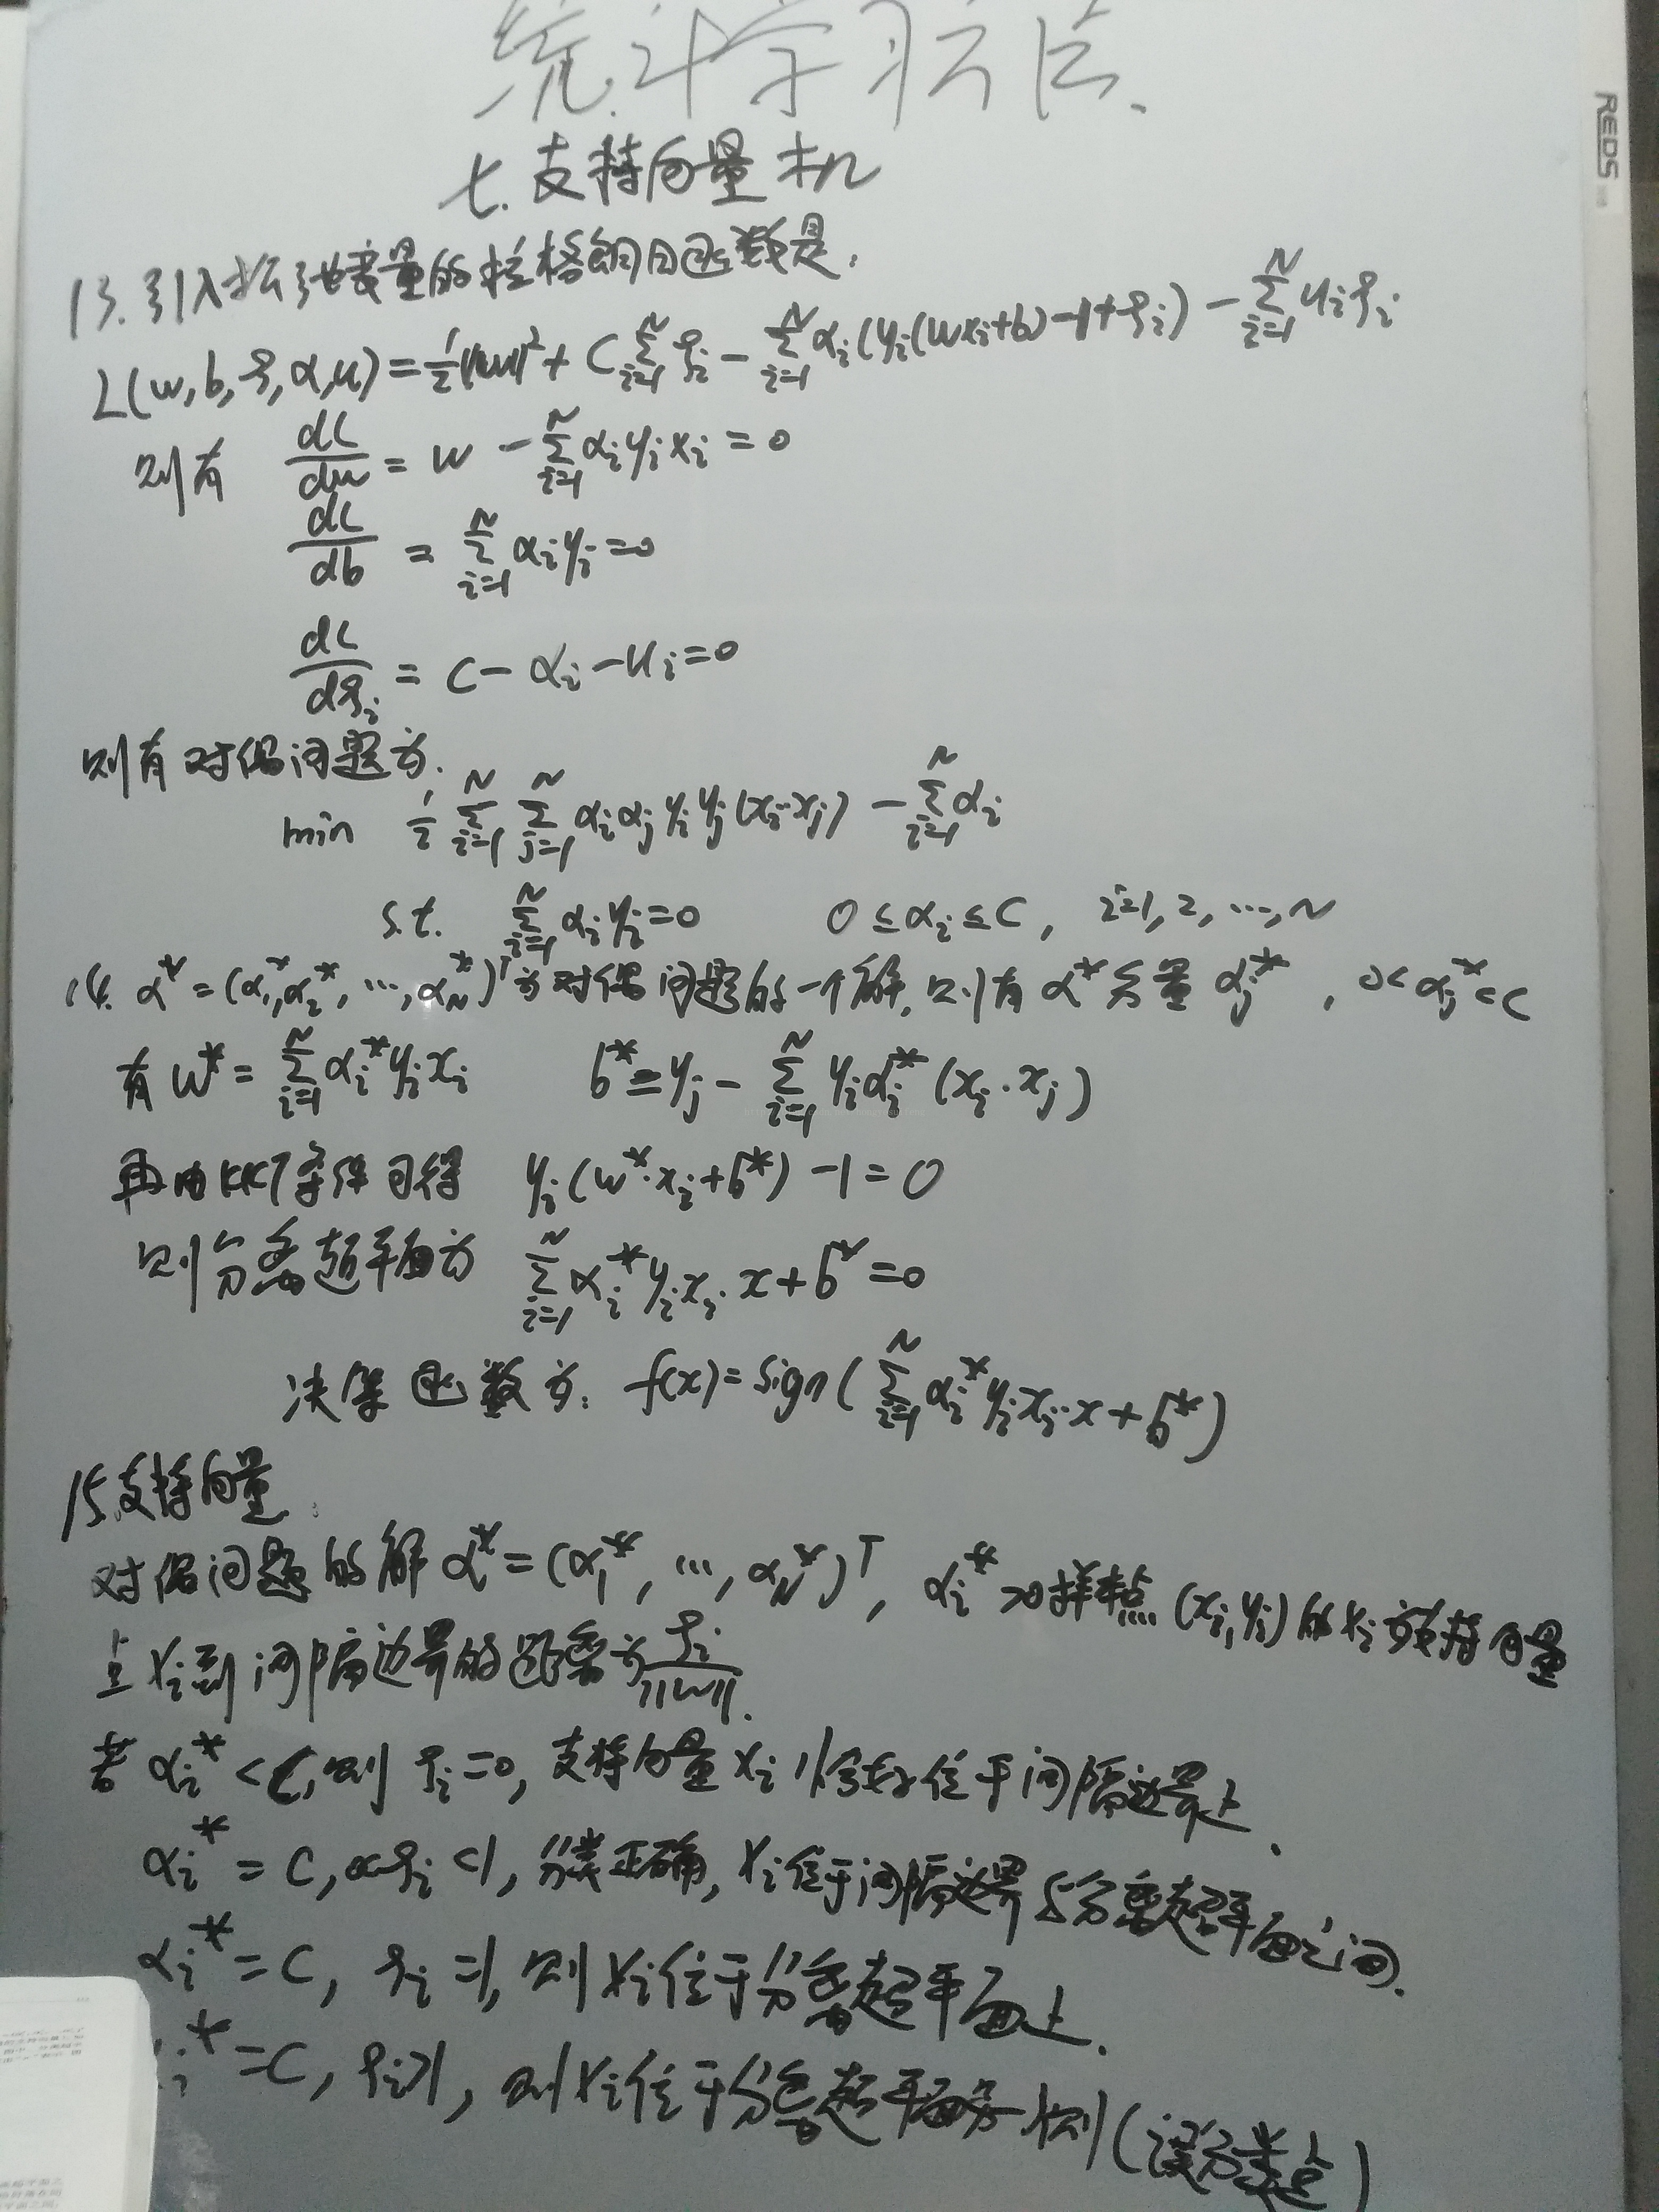 统计学习方法.
REDS
七.支持向量机
13.引入松弛变量的拉格朗日函数是.
L(w,b,ξ,α,u)=½||w||²+C∑ᵢ₌₁ᴺξᵢ-∑ᵢ₌₁ᴺαᵢ(yᵢ(wxᵢ+b)-1+ξᵢ)-∑ᵢ₌₁ᴺuᵢξᵢ
则有 dL/dw=w-∑ᵢ₌₁ᴺαᵢyᵢxᵢ=0
dL/db=∑ᵢ₌₁ᴺαᵢyᵢ=0
dL/dξᵢ=C-αᵢ-uᵢ=0
则有对偶问题为.
min ½∑ᵢ₌₁ᴺ∑ⱼ₌₁ᴺαᵢαⱼyᵢyⱼ(xᵢ·xⱼ)-∑ᵢ₌₁ᴺαᵢ
s.t. ∑ᵢ₌₁ᴺαᵢyᵢ=0 0≤αᵢ≤C, i=1,2,…,N
14. α*=(α₁*,α₂*,…,α_N*)ᵀ为对偶问题的一个解,则有α*分量αⱼ*, 0<αⱼ*<C
有w*=∑ᵢ₌₁ᴺαᵢ*yᵢxᵢ b*=yⱼ-∑ᵢ₌₁ᴺyᵢαᵢ*(xᵢ·xⱼ)
再由KKT条件可得 yᵢ(w*·xᵢ+b*)-1=0
则分离超平面为 ∑ᵢ₌₁ᴺαᵢ*yᵢxᵢ·x+b*=0
决策函数为: f(x)=sign(∑ᵢ₌₁ᴺαᵢ*yᵢxᵢ·x+b*)
15.支持向量
对偶问题的解α*=(α₁*,…,α_N*)ᵀ, αᵢ*>0样本点(xᵢ,yᵢ)的xᵢ为支持向量
点xᵢ到间隔边界的距离为ξᵢ/||w||.
若αᵢ*<C,则ξᵢ=0,支持向量xᵢ恰好位于间隔边界上.
αᵢ*=C,0<ξᵢ<1,分类正确,xᵢ位于间隔边界与分离超平面之间.
αᵢ*=C, ξᵢ=1,则xᵢ位于分离超平面上.
αᵢ*=C, ξᵢ>1, 则xᵢ位于分离超平面另一侧(误分类点)